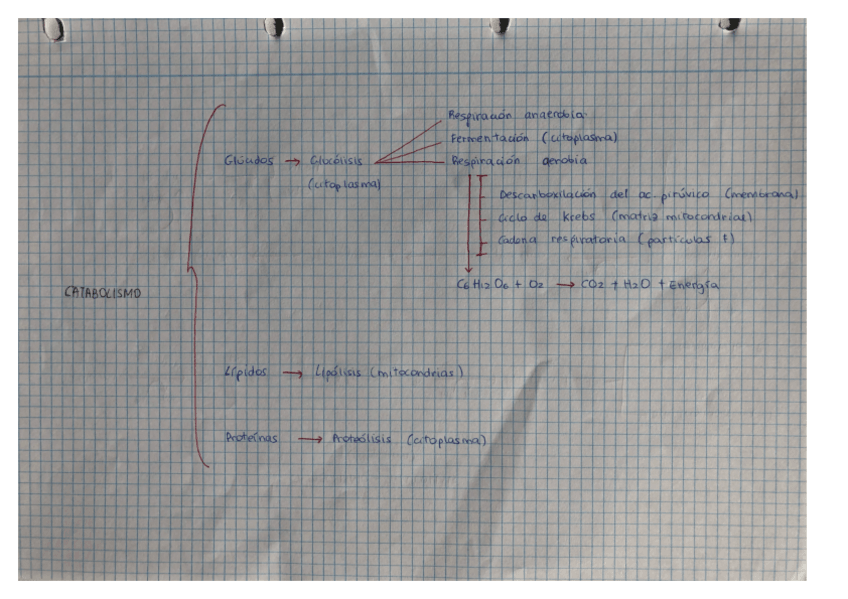 Respiración anaerobia
Fermentación (citoplasma)
Glúcidos → Glucólisis Respiración aerobia
(citoplasma)
Descarboxilación del ac. pirúvico (membrana)
Ciclo de Krebs (matriz mitocondrial)
Cadena respiratoria (partículas f)
C6 H12 O6 + O2 → CO2 + H2O + Energía
CATABOLISMO
Lípidos → Lipólisis (mitocondrias)
Proteínas → Proteólisis (citoplasma)